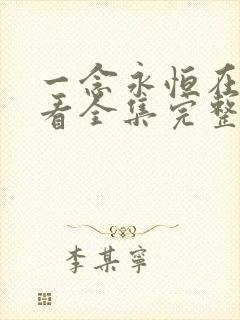 一念永恒在
看全集完整
李某宁